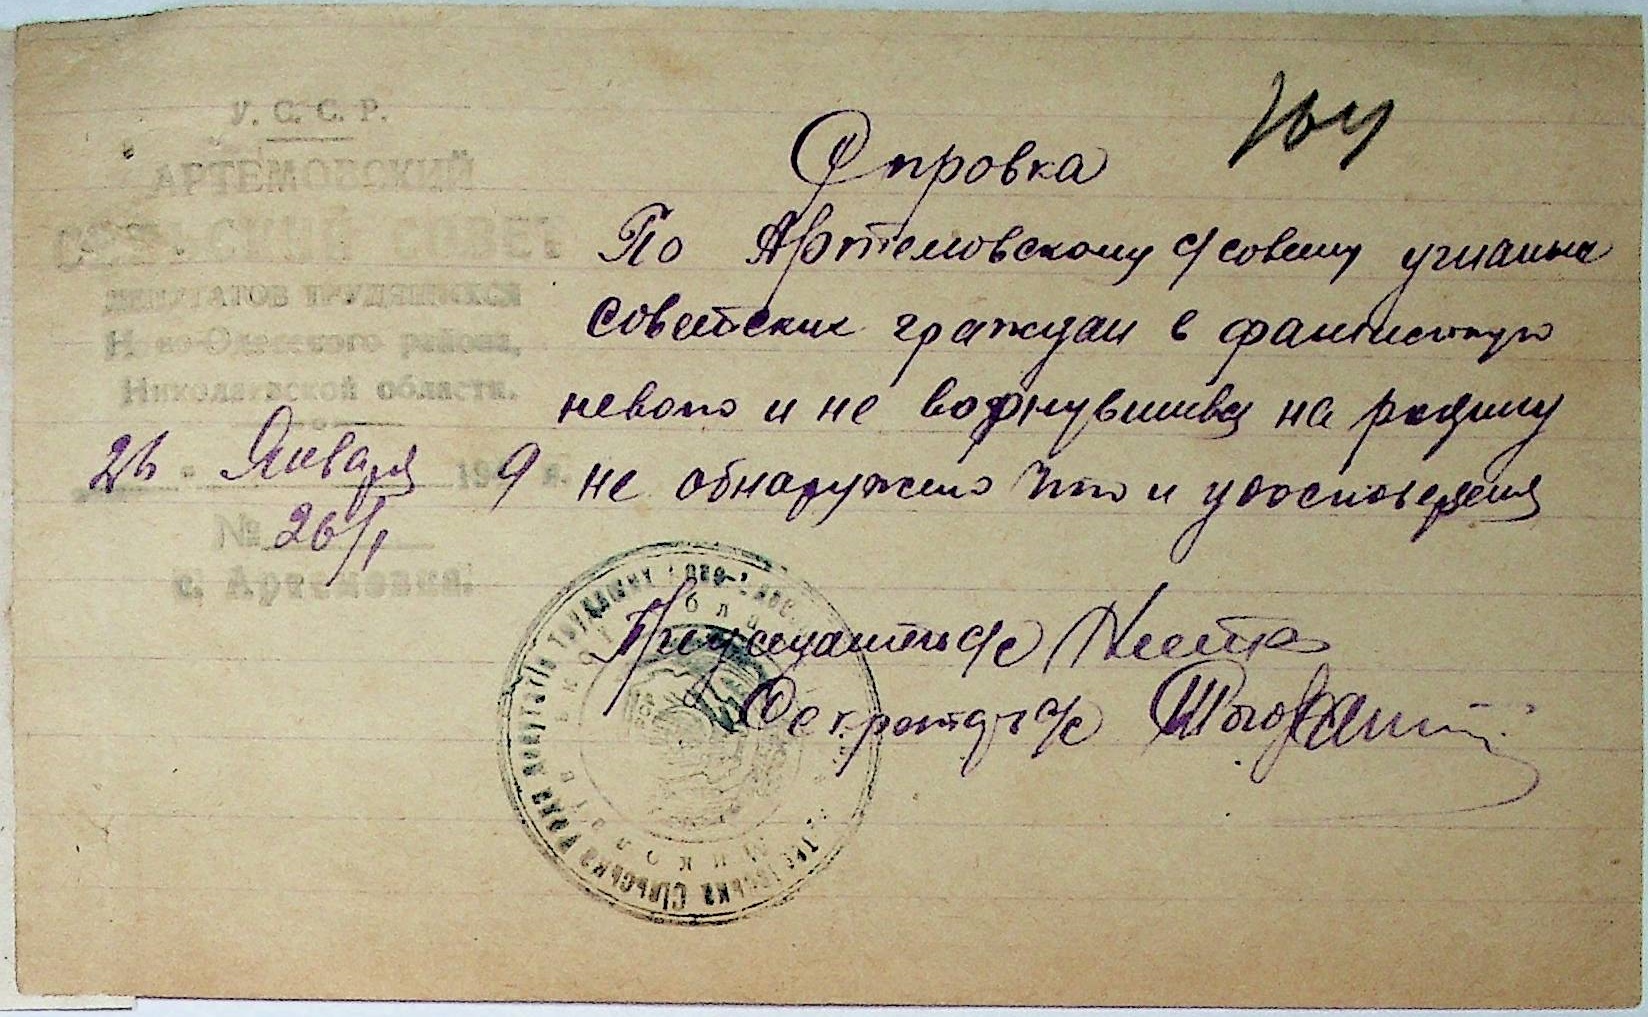 У. С. С. Р.
АРТЕМОВСКИЙ
СЕЛЬСКИЙ СОВЕТ
ДЕПУТАТОВ ТРУДЯЩИХСЯ
Ново-Одесского района,
Николаевской области.
26 Января 194 9 г.
№ 26/1
с. Артемовка.
Справка
По Артемовскому с/совету угнаных
советских граждан в фашистскую
неволю и не вернувшився на родину
не обнаружено что и удостоверяем
Председатель с/с
Секретарь с/с